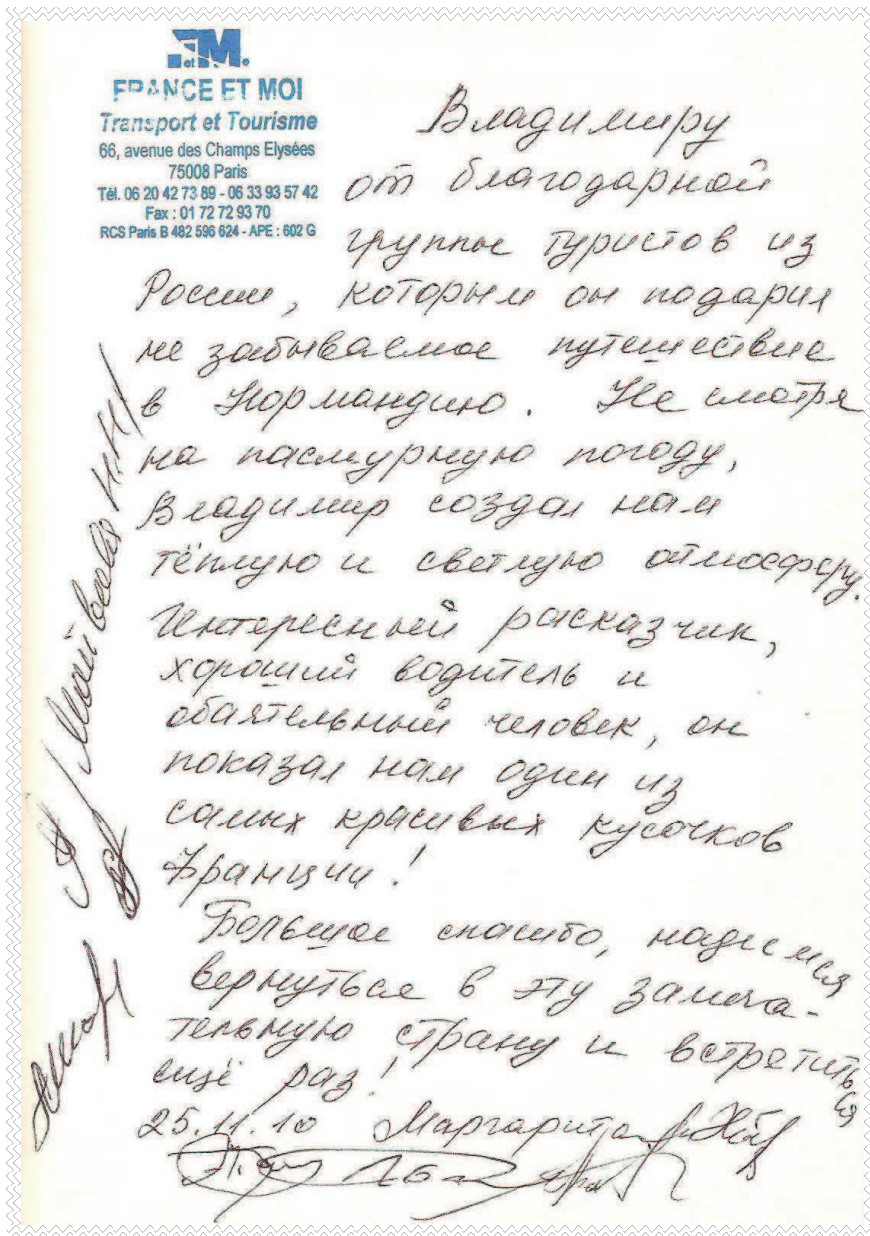 F et M.
FRANCE ET MOI
Transport et Tourisme
66, avenue des Champs Elysées
75008 Paris
Tél. 06 20 42 73 89 - 06 33 93 57 42
Fax : 01 72 72 93 70
RCS Paris B 482 596 624 - APE : 602 G
Владимиру
от благодарной
группы туристов из
России, которым он подарил
не забываемое путешествие
в Нормандию. Не смотря
на пасмурную погоду,
Владимир создал нам
тёплую и светлую атмосферу.
Интересный расказчик,
хороший водитель и
обаятельный человек, он
показал нам один из
самых красивых кусочков
Франции!
Большое спасибо, надеемся
вернуться в эту замеча-
тельную страну и встретиться
ещё раз!
25.11.10 Маргарита